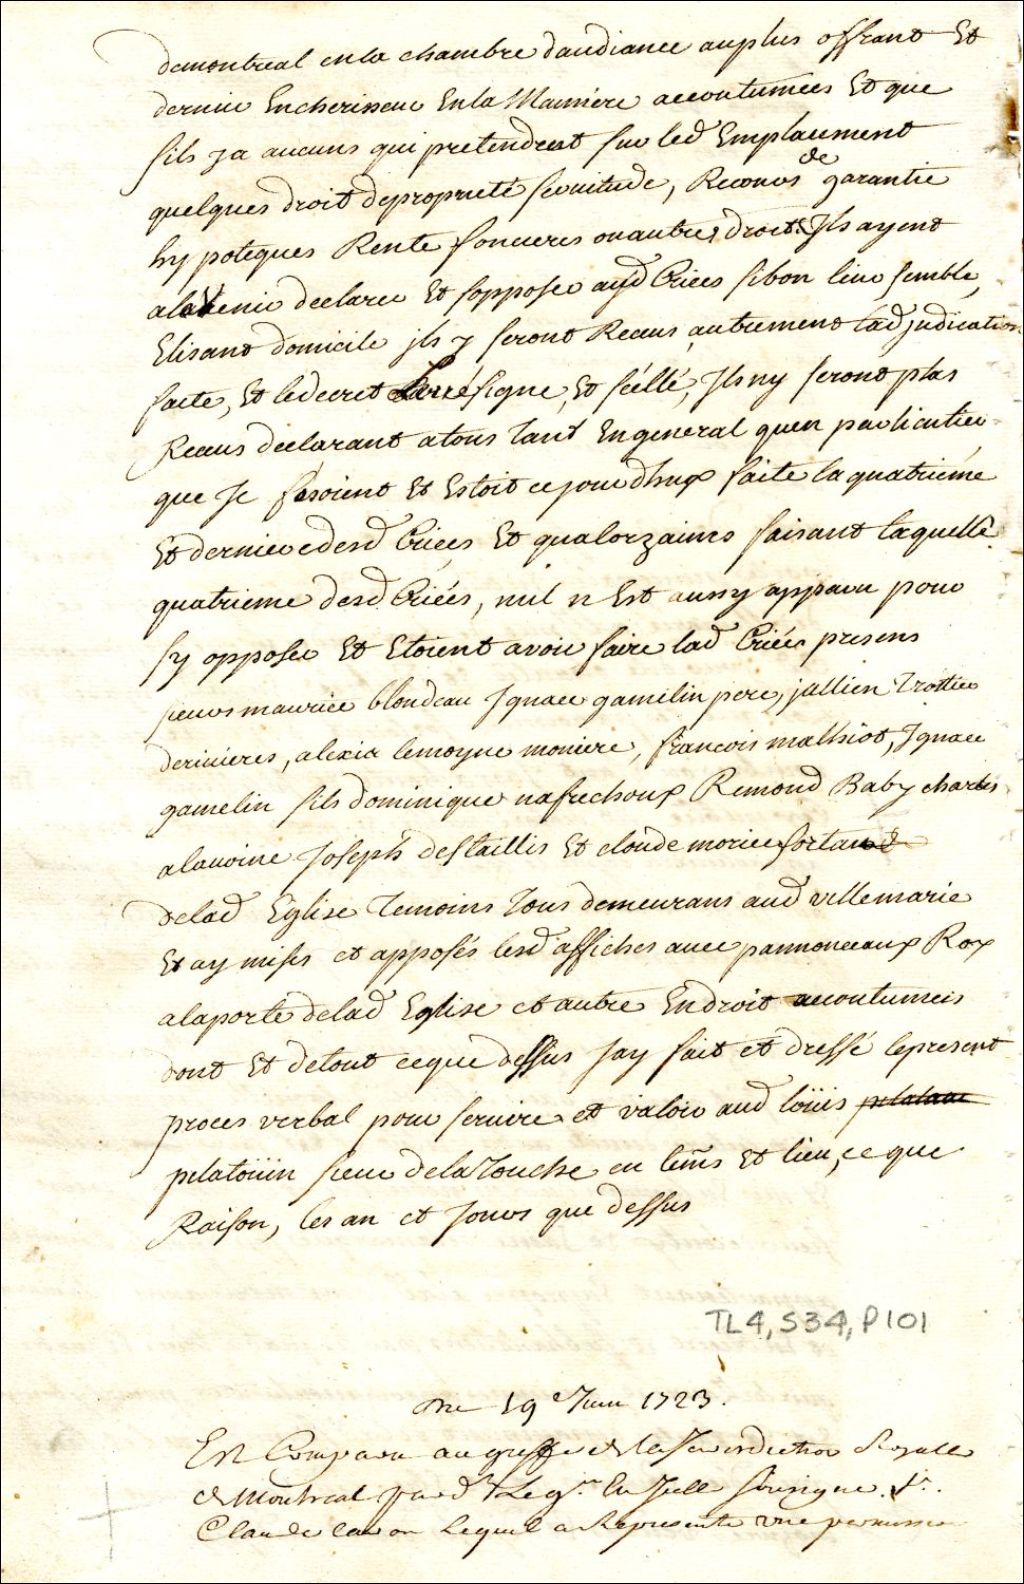 demontreal en la chambre daudiance auplus offrant Et
dernier Encherisseur En la Maniere accoutumées Et que
sils ya aucuns qui pretendent sur led Emplacement
quelques droit depropriete servitude, Recours de garantie
hypoteques Rente foncieres ou autres droits Ils ayent
alavenir declarer Et sopposer ausd Criées sibon leur semble,
Elisant domicile ils y seront Recus autrement lad judication
faite, Et ledecret signe, Et séllé, Ils ny seront plus
Recus declarant atous tant En general quen particulier
que Je fesoient Et Estoit cejourdhuy faite la quatrieme
Et derniere desd Criées Et quatorzaines faisant laquelle
quatrieme desd Criées, nul n Est aussy apparu pour
sy opposer Et Etoient avoir faire lad Criée presens
sieurs maurice blondeau Ignace gamelin pere, jullien Trottier
derivieres, alexis lemoyne moniere, francois malhiot, Ignace
gamelin fils dominique nafrechoux Remond Baby charles
alavoine Joseph destaillis Et cloude morice sortant
delad Eglise Temoins Tous demeurans aud villemarie
Et ay mises et apposés lesd affiches avec pannonceaux Roy
alaporte delad Eglise et autre Endroit accoutumeis
dont Et detout ceque dessus Jay fait et dressé lepresent
proces verbal pour servire et valoir aud loüis
pelatoüin sieur delaTouche en tems Et lieu, ce que
Raison, les an et Jours que dessus
TL4, S34, P101
19e Juin 1723.
Est Comparu au greffe de la Jurisdiction Royalle
de Montreal
Claude caron Lequel a Represente une